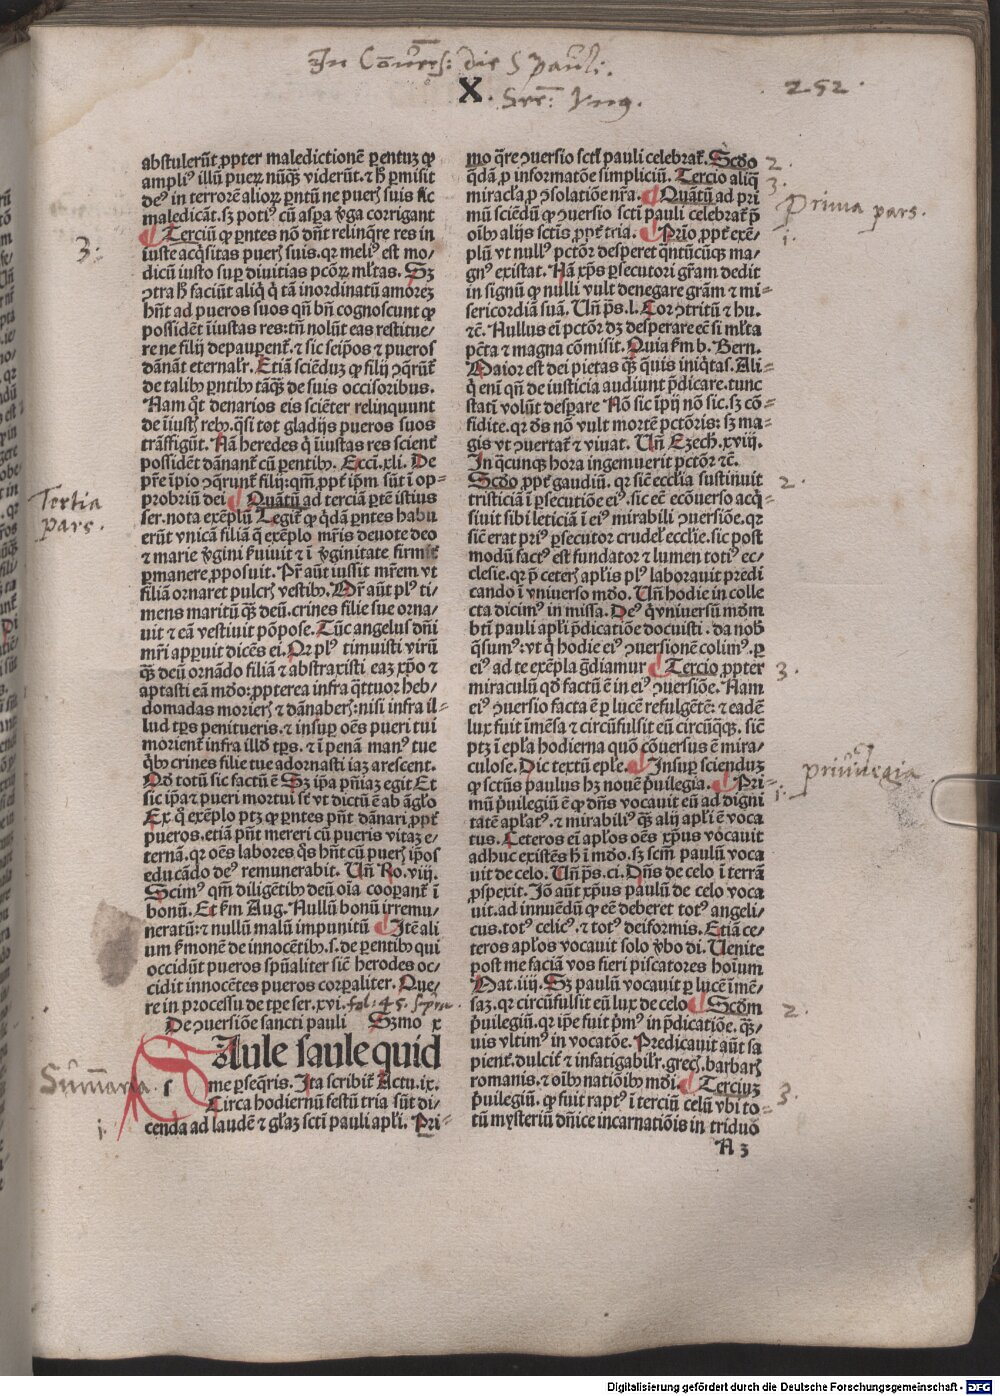 In Cōuers: die S pauli.
X. Ser: Vnꝰ.
252.
abstulerūt ꝓpter maledictionē parentuꝫ ꝙ
ampliꝰ illū pueꝝ nūqꝫ viderūt. ⁊ hꝭ ꝑmisit
deꝰ in terrorē alioꝝ parentū ne pueris suis sic
maledicāt. sꝫ potiꝰ cū aspera virga corrigant
¶ Terciū ꝙ ꝑntes nō dn̄t relinq̄re res in
iuste acq̄sitas pueris suis. qꝛ meliꝰ est mo⸗
dicū iusto suꝑ diuitias pctōꝝ ml̄tas. Sꝫ
ↄtra hꝭ faciūt aliq̇ q̇ tā inordinatū amoreꝫ
hn̄t ad pueros suos qn̄ bn̄ cognoscunt ꝙ
possidēt iniustas res: tn̄ nolūt eas restitue⸗
re ne filij depauꝑent̄. ⁊ sic seip̄os ⁊ pueros
dānāt eternalr̄. Etiā sciēduꝫ ꝙ filij ↄq̄rūt̄
de talibꝰ ꝑntibꝰ tāqꝫ de suis occisoribus.
Nam qt̄ denarios eis sciēter relinquunt
de iniustis rebꝰ. q̄si tot gladijs pueros suos
trāsfigūt. Nā heredes q̇ iniustas res scient̄
possidēt dānant̄ cū ꝑentibꝰ. Ecci. xli. De
pr̄e impio ↄq̄runt̄ filij: qm̄ ꝓpt̄ ip̄m sūt ī op⸗
probriū dei ¶ Quātū ad terciā ꝑtē istius
ser. nota exēplū Legit̄ ꝙ q̄dā ꝑntes habu
erūt vnicā filiā q̄ exēplo mr̄is deuote deo
⁊ marie v̄gini ẜuiuit ⁊ ī v̄ginitate firmit̄
ꝑmanere ꝓposuit. Pr̄ aūt iussit mr̄em vt
filiā ornaret pulcris vestibꝰ. Mr̄ aūt plꝰ ti⸗
mens maritū qꝫ deū. crines filie sue orna⸗
uit ⁊ eā vestiuit pōpose. Tūc angelus dn̄i
mr̄i apparuit dicēs ei. Qꝛ plꝰ timuisti virū
qꝫ deū ornādo filiā ⁊ abstraxisti eaꝫ xp̄o ⁊
aptasti eā mūdo: ꝓpterea infra q̄ttuor heb⸗
domadas morieris ⁊ dānaberis: nisi infra il⸗
lud tp̄s penitueris. ⁊ insuꝑ oēs pueri tui
morient̄ infra illd tp̄s. ⁊ ī penā manꝰ tue
q̇bꝰ crines filie tue adornasti iaꝫ arescent.
Qd totū sic factū ē Sꝫ ip̄a pn̄iaꝫ egit Et
sic ip̄a ⁊ pueri mortui sūt vt dictū ē ab āgl̄o
Ex q̇ exēplo ptꝫ ꝙ ꝑntes pn̄t dānari ꝓpt̄
pueros. etiā pn̄t mereri cū pueris vitaꝫ e⸗
ternā. qꝛ oēs labores q̇s hn̄t cū pueris ip̄os
educādo deꝰ remunerabit. Vn̄ Ro. viij.
Scimꝰ qm̄ diligētibꝰ deū oīa cooꝑant̄ ī
bonū. Et ẜm Aug. Nullū bonū irremu⸗
neratū: ⁊ nullū malū impunitū ¶ Itē ali
um ẜmonē de innocētibꝰ. s. de ꝑentibꝰ qui
occidūt pueros spūaliter sic̄ herodes oc⸗
cidit innocētes pueros corꝑaliter. Que⸗
re in processu de tꝑe ser. xvi. fol: 45. supra.
De ↄuersiōe sancti pauli Sẜmo x
SAule saule quid
me ꝑseq̄ris. Ita scribit̄ Actu. ix.
Circa hodiernū festū tria sūt di⸗
cenda ad laudē ⁊ gl̄aꝫ scti pauli apl̄i. Pri⸗
mo q̄re ↄuersio scti pauli celebrat̄. Scd̄o
q̄dā ꝓ informatōe simpliciū. Tercio aliq̄
miracl̄a ꝓ ↄsolatiōe nr̄a. ¶ Quātū ad pri
mū sciēdū ꝙ ↄuersio scti pauli celebrat̄ p̄
oībꝰ alijs sctis ꝓpt̄ tria. ¶ Prio ꝓpt̄ exē⸗
plū vt nullꝰ pctōr desperet q̄ntūcūqꝫ ma⸗
gnꝰ existat. Nā xp̄s ꝑsecutori gr̄am dedit
in signū ꝙ nulli vult denegare gr̄am ⁊ mi⸗
sericordiā suā. Vn̄ ps̄. l. Cor ↄtritū ⁊ hu.
⁊c. Nullus ei pctōr dꝫ desperare eē si ml̄ta
pctā ⁊ magna cōmisit. Quia ẜm b. Bern.
Maior est dei pietas qꝫ quis iniq̄tas. Ali⸗
q̇ enī qn̄ de iusticia audiunt p̄dicare. tunc
statī volūt desꝑare Nō sic ip̄ij nō sic. sꝫ cō⸗
fidite. qꝛ ds̄ nō vult mortē pctōris: sꝫ ma⸗
gis vt ↄuertat̄ ⁊ viuat. Vn̄ Ezech. xviij.
In q̄cunqꝫ hora ingemuerit pctōr ⁊c.
Scd̄o ꝓpt̄ gaudiū. qꝛ sic̄ eccl̄ia sustinuit
tristiciā ī ꝑsecutiōe eiꝰ. sic eē ecōuerso acq̄⸗
siuit sibi leticiā ī eiꝰ mirabili ↄuersiōe. qꝛ
sic̄ erat priꝰ ꝑsecutor crudel̄ eccl̄ie. sic post
modū factꝰ est fundator ⁊ lumen totiꝰ ec⸗
clesie. qꝛ p̄ ceteris apl̄is plꝰ laborauit predi
cando ī vniuerso mūdo. Vn̄ hodie in colle
cta dicimꝰ in missa. Deꝰ q̇ vniuersū mūdm
bt̄i pauli apl̄i p̄dicatiōe docuisti. da nobis
q̄sumꝰ: vt q̇ hodie eiꝰ ↄuersionē colimꝰ. ꝑ
eiꝰ ad te exēpla gradiamur ¶ Tercio ꝓpter
miraculū qd̄ factū ē in eiꝰ ↄuersiōe. Nam
eiꝰ ↄuersio facta ē ꝑ lucē refulgētē: ⁊ eadē
lux fuit īmēsa ⁊ circūfulsit eū circūq̄qꝫ. sic̄
ptꝫ ī epl̄a hodierna quō cōuersus ē mira⸗
culose. Dic textū epl̄e. ¶ Insuꝑ scienduꝫ
ꝙ sctūs paulus hꝫ nouē p̄uilegia. ¶ Pri⸗
mū p̄uilegiū ē ꝙ dn̄s vocauit eū ad digni
tatē apl̄atꝰ. ⁊ mirabiliꝰ qꝫ alij apl̄i ē voca
tus. Ceteros ei apl̄os oēs xp̄us vocauit
adhuc existēs hic ī mūdo. sꝫ scm̄ paulū voca
uit de celo. Vn̄ ps̄. ci. Dn̄s de celo ī terrā
ꝓspexit. Jō aūt xp̄us paulū de celo voca
uit. ad innuēdū ꝙ eē deberet totꝰ angeli⸗
cus. totꝰ celicꝰ. ⁊ totꝰ deiformis. Etiā ce⸗
teros apl̄os vocauit solo v̄bo di. Uenite
post me faciā vos fieri piscatores hoīum
Mat. iiij. Sꝫ paulū vocauit ꝑ lucē īmē⸗
saꝫ. qꝛ circūfulsit eū lux de celo ¶ Scd̄m
p̄uilegiū. qꝛ ip̄e fuit pm̄ꝰ in p̄dicatiōe. qꝫ⸗
uis vltimꝰ in vocatōe. Predicauit aūt sa
pient̄. dulcit̄ ⁊ infatigabilr̄. grecis. barbaris
romanis. ⁊ oībꝰ natiōibꝰ mūdi. ¶ Terciuꝫ
p̄uilegiū. ꝙ fuit raptꝰ ī terciū celū vbi to⸗
tū mysteriū dn̄ice incarnatiōis in triduō
A 3
3:
Tertia
pars.
Sum̄aria.
1.
2.
3.
Prima pars.
1.
2.
3.
priuilegia
1.
2.
3.
Digitalisierung gefördert durch die Deutsche Forschungsgemeinschaft - DFG